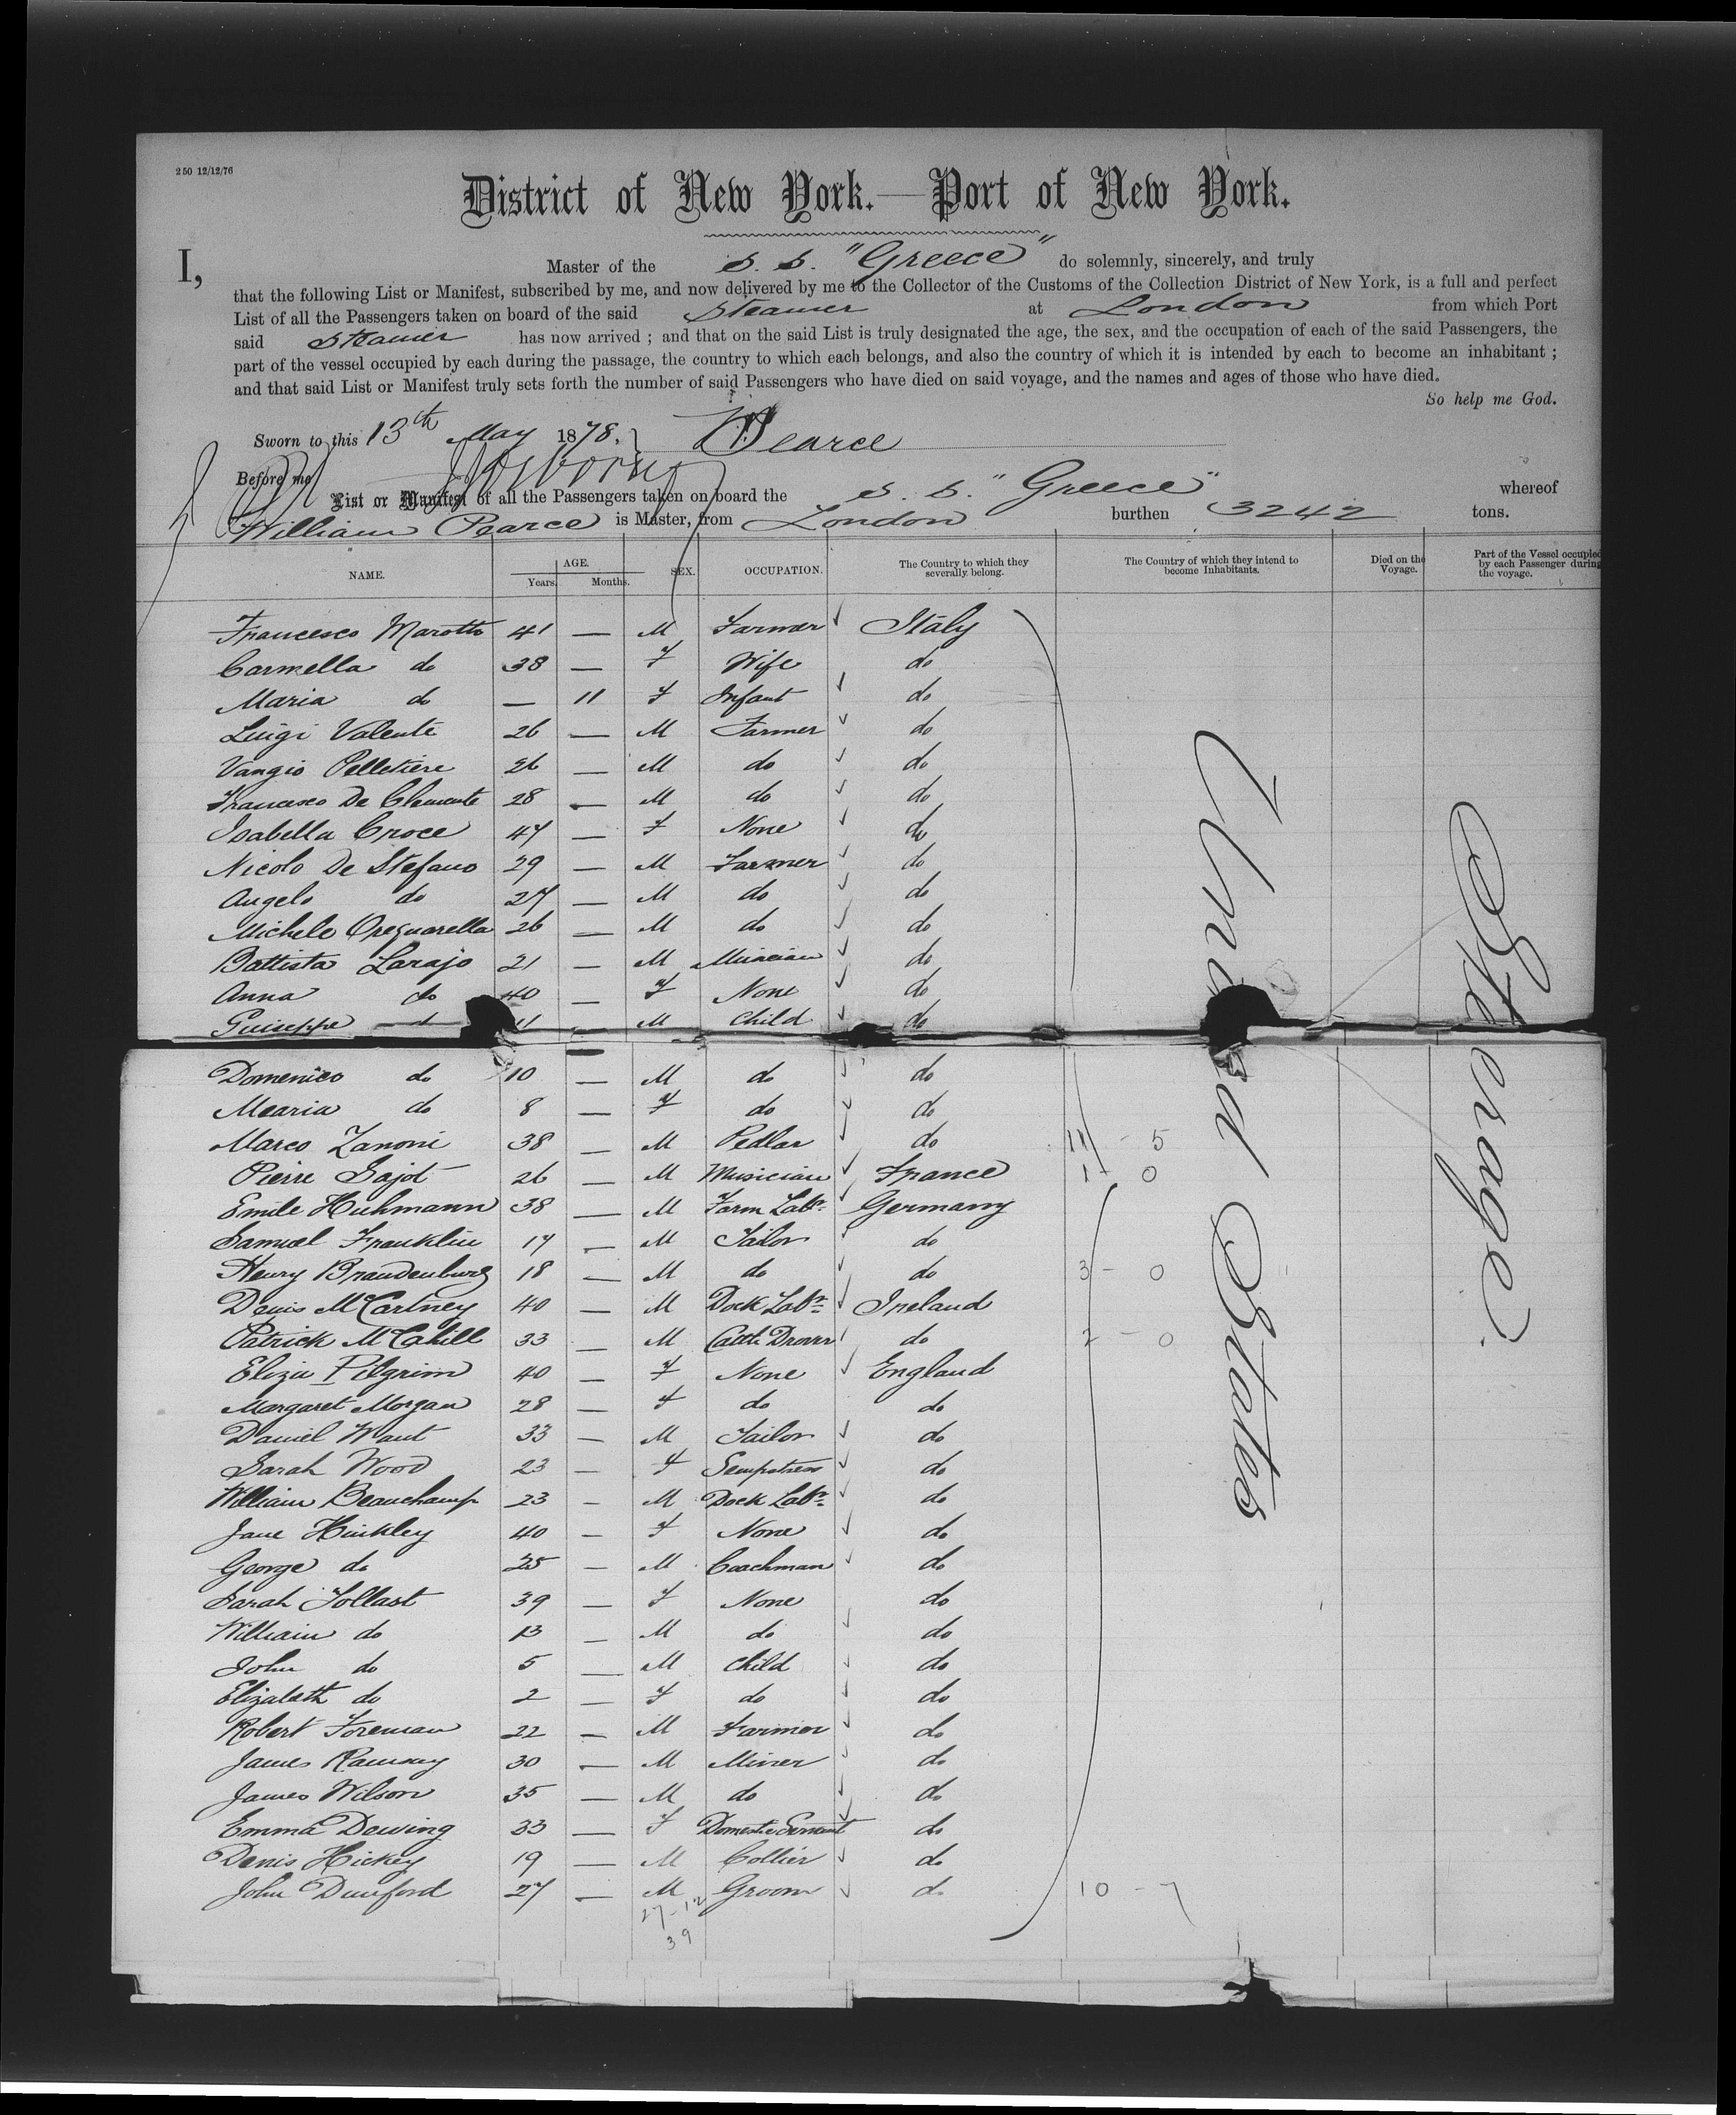 250 12/12/76
District of New York.—Port of New York.
I, Master of the S. S. "Greece" do solemnly, sincerely, and truly
that the following List or Manifest, subscribed by me, and now delivered by me to the Collector of the Customs of the Collection District of New York, is a full and perfect
List of all the Passengers taken on board of the said Steamer at London from which Port
said Steamer has now arrived ; and that on the said List is truly designated the age, the sex, and the occupation of each of the said Passengers, the
part of the vessel occupied by each during the passage, the country to which each belongs, and also the country of which it is intended by each to become an inhabitant ;
and that said List or Manifest truly sets forth the number of said Passengers who have died on said voyage, and the names and ages of those who have died.
So help me God.
Sworn to this 13th May 1878. W Pearce
Before me
List or Manifest of all the Passengers taken on board the S. S. "Greece" whereof
William Pearce is Master, from London burthen 3242 tons.
NAME. AGE. Years. Months. SEX. OCCUPATION. The Country to which they severally belong. The Country of which they intend to become Inhabitants. Died on the Voyage. Part of the Vessel occupied by each Passenger during the voyage.
Francesco Marotto 41 — M Farmer Italy
Carmella do 38 — F Wife do
Maria do — 11 F Infant do
Luigi Valente 26 — M Farmer do
Vangio Pelletiere 26 — M do do
Francesco De Clemente 28 — M do do
Isabella Croce 47 — F None do
Nicolo De Stefano 29 — M Farmer do
Angelo do 27 — M do do
Michele 26 — M do do
Battista Larajo 21 — M Musician do
Anna do 40 — F None do
Guiseppe do 11 — M Child do
Domenico do 10 — M do do
Mearia do 8 — F do do
Marco Zanoni 38 — M Pedlar do 11 - 5
Pierre Sajot 26 — M Musician France 1 - 0
Emile Huhmann 38 — M Farm Labr. Germany
Samuel Franklin 17 — M Tailor do
Henry Brandenburg 18 — M do do 3 - 0
Denis McCartney 40 — M Dock Labr. Ireland
Patrick McCahill 33 — M Cattle Drover do 2 - 0
Eliza Pilgrim 40 — F None England
Margaret Morgan 28 — F do do
Daniel Want 33 — M Tailor do
Sarah Wood 23 — F Sempstress do
William Beauchamp 23 — M Dock Labr. do
Jane Hinkley 40 — F None do
George do 25 — M Coachman do
Sarah Tollast 39 — F None do
William do 13 — M do do
John do 5 — M Child do
Elizabeth do 2 — F do do
Robert Foreman 22 — M Farmer do
James Ramsay 30 — M Miner do
James Wilson 35 — M do do
Emma Dewing 33 — F Domestic Servant do
Denis Hickey 19 — M Collier do
John Dunford 27 — M Groom do 10 - 7
27 - 12
39
United States
Steerage